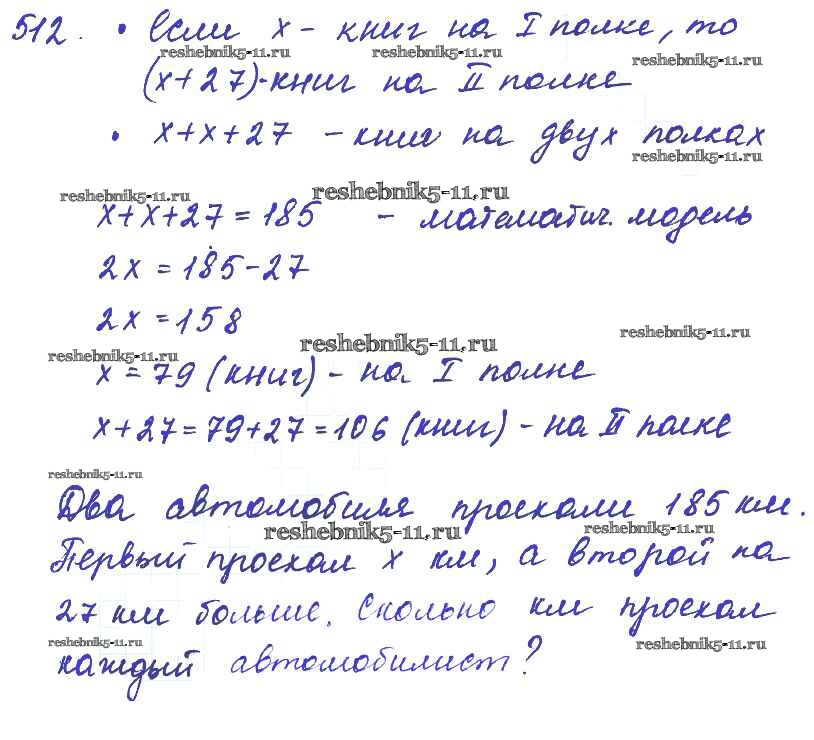 512. • Если x - книг на I полке, то
reshebnik5-11.ru reshebnik5-11.ru reshebnik5-11.ru
(x+27)-книг на II полке
• x+x+27 - книг на двух полках
reshebnik5-11.ru
reshebnik5-11.ru reshebnik5-11.ru
x+x+27=185 - математич. модель
2x=185-27
2x=158
reshebnik5-11.ru reshebnik5-11.ru reshebnik5-11.ru
x=79 (книг) - на I полке
x+27=79+27=106 (книг) - на II полке
reshebnik5-11.ru
Два автомобиля проехали 185 км.
reshebnik5-11.ru reshebnik5-11.ru
Первый проехал x км, а второй на
27 км больше. Сколько км проехал
reshebnik5-11.ru reshebnik5-11.ru
каждый автомобилист?